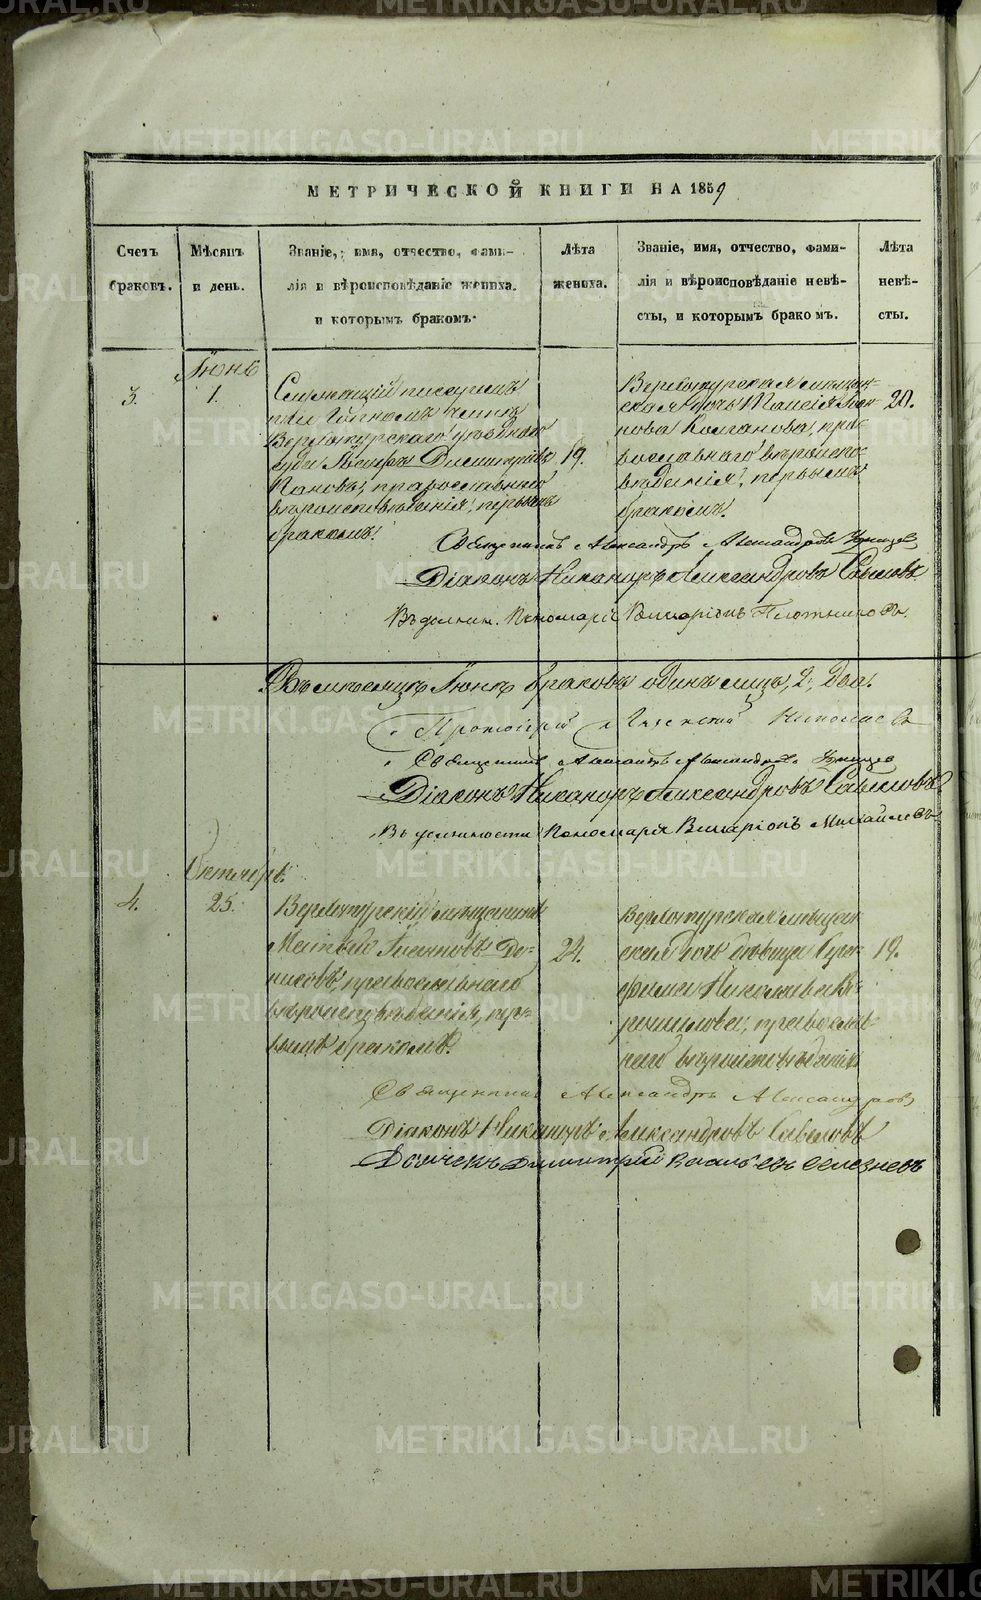 МЕТРИЧЕСКОЙ КНИГИ НА 1859
Счетъ браковъ.
Мѣсяцъ и день.
Званіе, имя, отчество, фами-
лія и вѣроисповѣданіе жениха.
и которымъ бракомъ.
Лѣта жениха.
Званіе, имя, отчество, фами-
лія и вѣроисповѣданіе невѣ-
сты, и которымъ бракомъ.
Лѣта невѣ-
сты.
Іюнь
3.
1.
Верхотурскаго уѣзднаго
суда Димитріевъ
Пановъ, православнаго
вѣроисповѣданія, первымъ
бракомъ.
19.
Верхотурская мѣщан-
ская дочь Таисія
пра-
вославнаго вѣроиспо-
вѣданія, первымъ
бракомъ.
20.
Священникъ Александръ Александровъ
Діаконъ Никаноръ Александровъ Савеловъ
Въ должн. Пономаря Виссаріонъ Плотниковъ.
Въ мѣсяцѣ Іюнѣ браковъ одинъ лицъ, 2, два.
Протоіерей Николаевъ
Священникъ Александръ Александровъ
Діаконъ Никаноръ Александровъ Савеловъ
Въ должности Пономаря Виссаріонъ Михайловъ
Октябрь.
4.
25.
Верхотурскій мѣщанинъ
Матвей Де-
нисовъ, православнаго
вѣроисповѣданія, пер-
вымъ бракомъ.
24.
Верхотурская мѣщан-
ская дочь девица
Николаева Во-
рошилова, православ-
наго вѣроисповѣданія
19.
Священникъ Александръ Александровъ
Діаконъ Никаноръ Александровъ Савеловъ
Дьячекъ Димитрій Селезневъ
METRIKI.GASO-URAL.RU